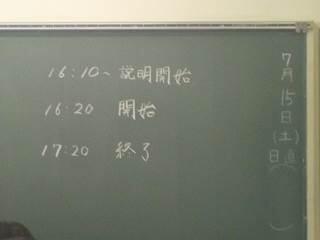 16:10~説明開始
16:20 開始
17:20 終了
7月15日(土)
日直